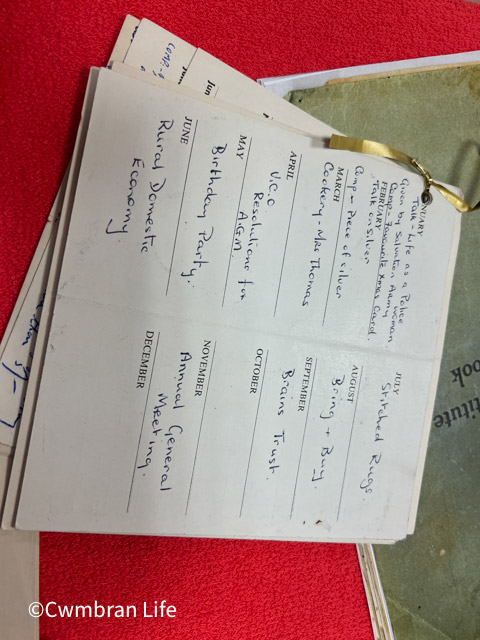 NUARY
Talk - Life as a Police
Given by Salvation Army woman
Comp - Favourite Xmas Card.
FEBRUARY
Talk on silver
Comp - Piece of silver
MARCH
Cookery - Mrs Thomas
APRIL
V.C.O
Resolutions for
A.G.M.
MAY
Birthday Party.
JUNE
Rural Domestic
Economy.
JULY
Stitched Rugs.
AUGUST
Bring + Buy.
SEPTEMBER
Brains Trust.
OCTOBER
NOVEMBER
Annual General
Meeting.
DECEMBER
titute
ook
Jun
©Cwmbran Life